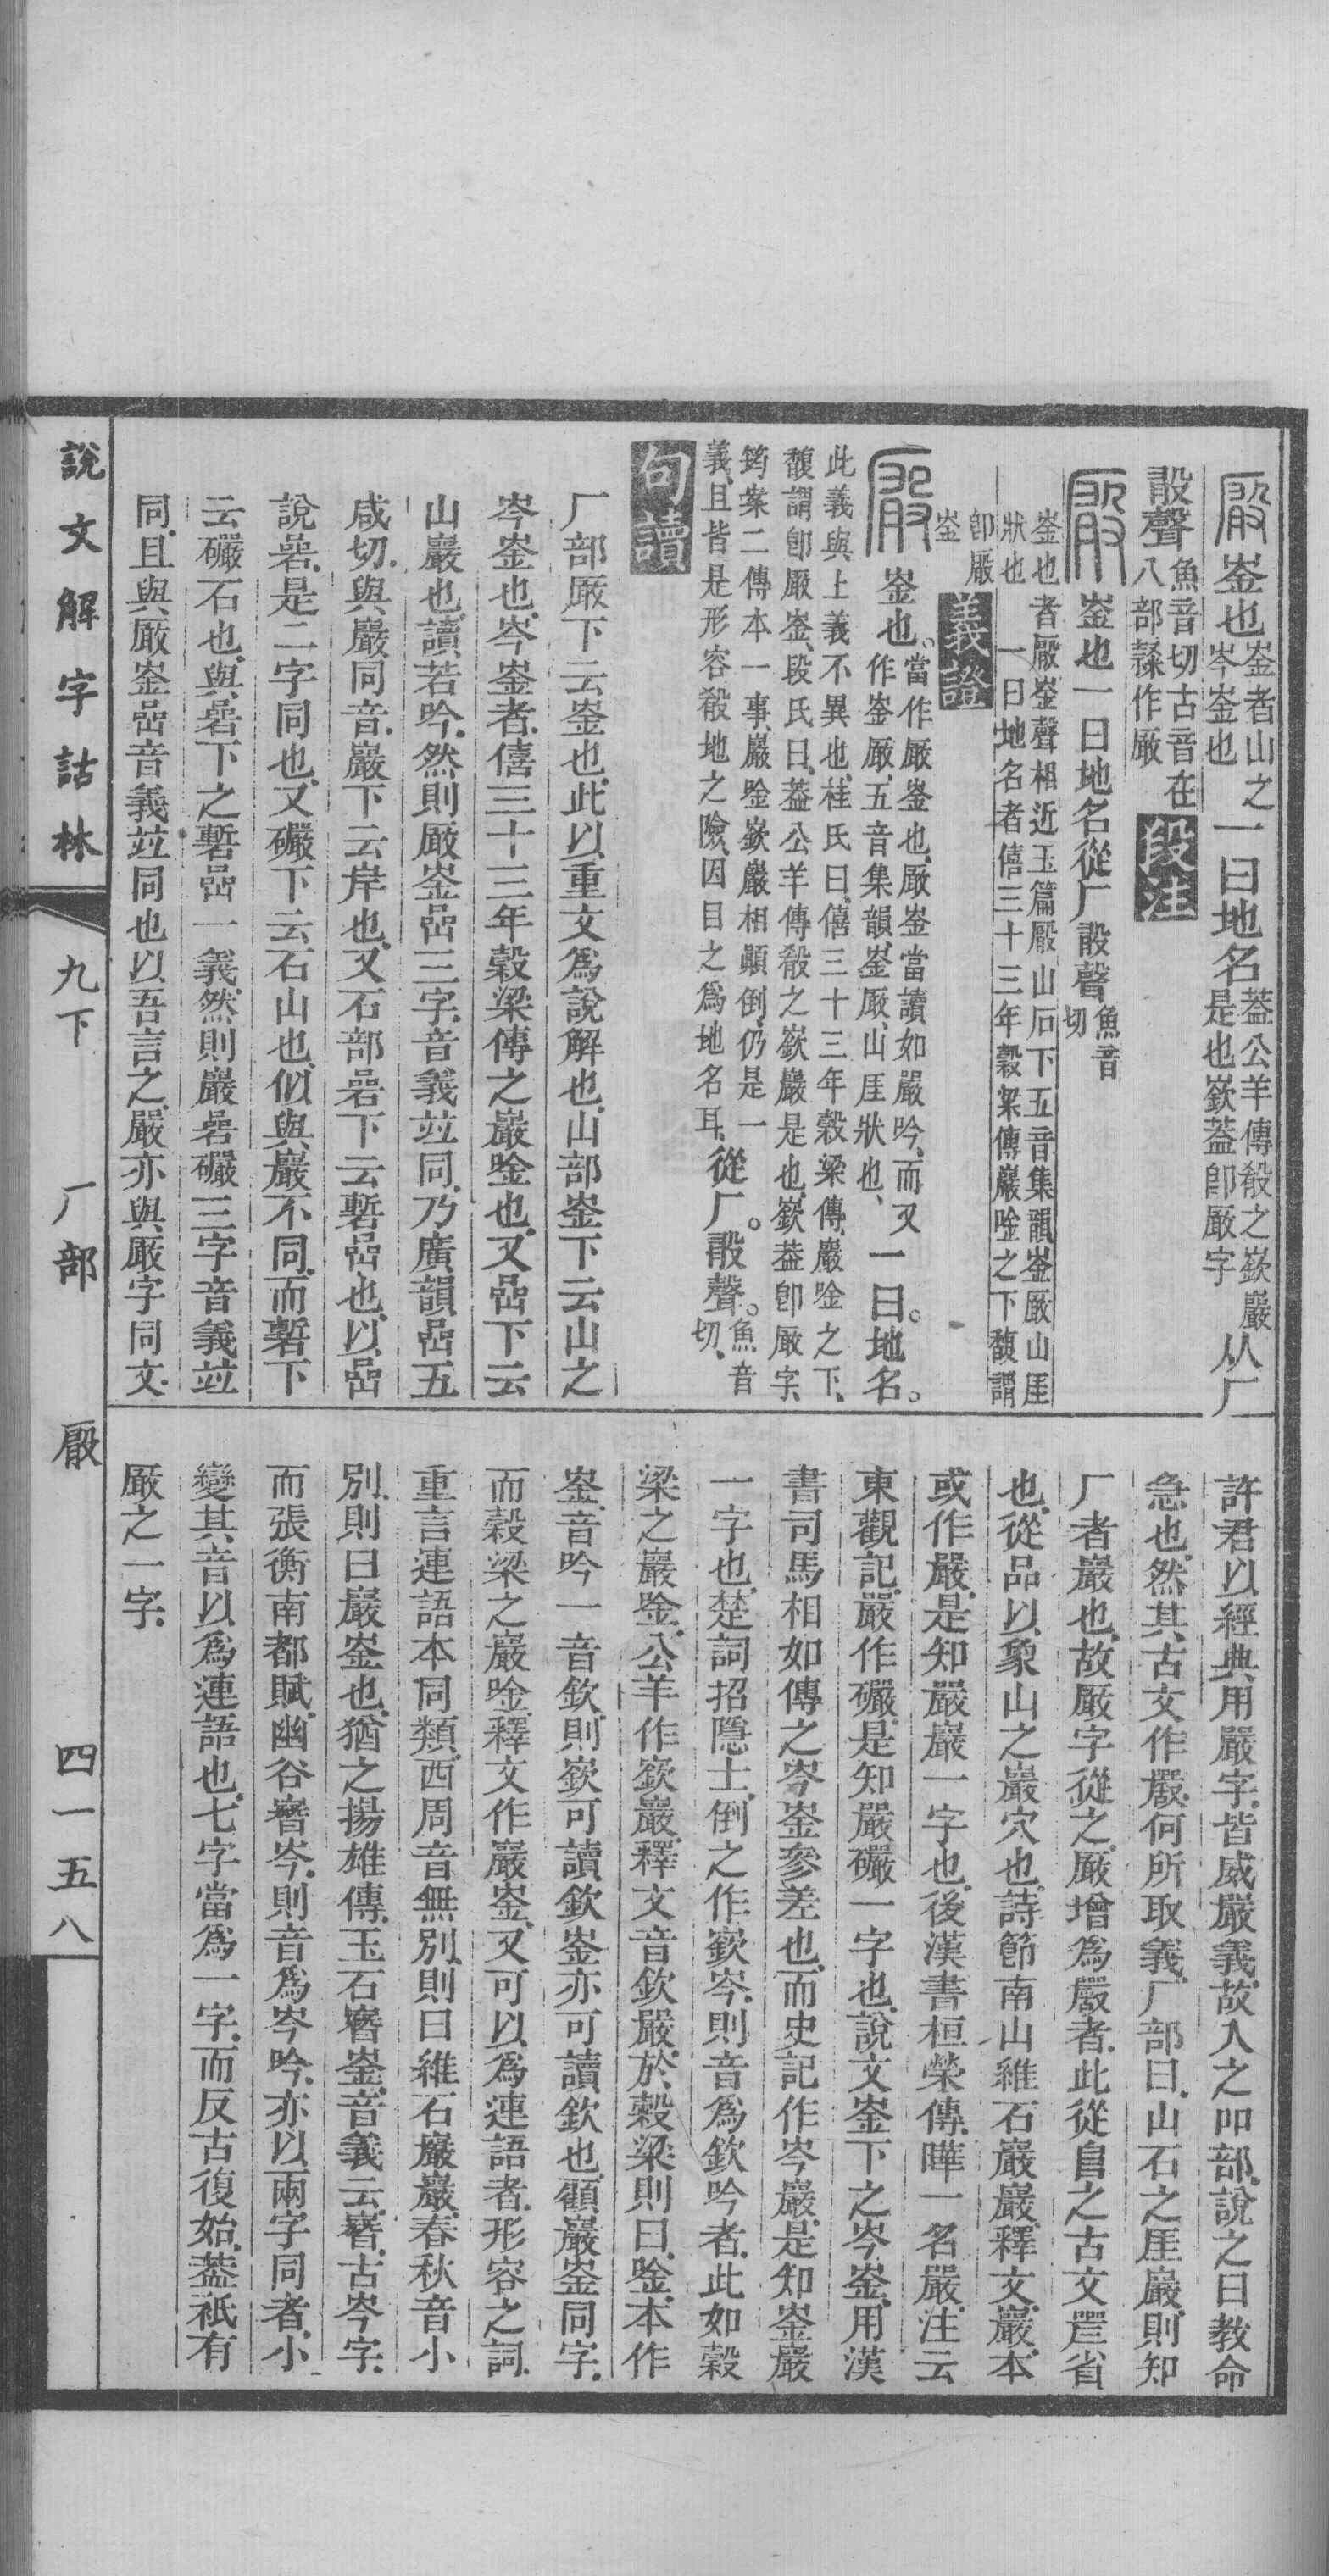 崟也崟者山之岑崟也一曰地名葢公羊傳殽之嶔巖是也嶔葢卽厰字从厂
𣪏聲魚音切古音在八部隸作厰 段注
崟也一曰地名從厂𣪏聲魚音切
崟也者厰崟聲相近玉篇厰山石下五音集韻崟厰山厓
狀也一曰地名者僖三十三年穀梁傳巖唫之下馥謂
卽厰崟 義證
崟也。當作厰崟也、厰崟當讀如嚴吟、而又作崟厰、五音集韻、崟厰、山厓狀也、一曰。地名。
此義與上義不異也、桂氏曰、僖三十三年穀梁傳、巖唫之下、
馥謂卽厰崟、段氏曰、葢公羊傳殽之嶔巖是也、嶔葢卽厰字、
筠案二傳本一事、巖唫嶔巖相顚倒、仍是一
義、且皆是形容殽地之險、因目之爲地名耳、從厂。𣪏聲。魚音切、
句讀
厂部厰下云崟也、此以重文爲說解也、山部崟下云山之
岑崟也、岑崟者、僖三十三年穀梁傳之巖唫也、又嵒下云
山巖也、讀若吟、然則厰崟嵒三字、音義竝同、乃廣韻嵒五
咸切、與巖同音、巖下云岸也、又石部碞下云磛嵒也、以嵒
說碞、是二字同也、又礹下云石山也、似與巖不同、而磛下
云礹石也、與碞下之磛嵒一義、然則巖碞礹三字音義竝
同、且與厰崟嵒音義竝同也、以吾言之、嚴亦與厰字同文、
許君以經典用嚴字、皆威嚴義、故入之吅部、說之曰教命
急也、然其古文作𠪚、何所取義、厂部曰、山石之厓巖、則知
厂者巖也、故厰字從之、厰增爲𠪚者、此從𠂤之古文𠼛省
也、從品以象山之巖穴也、詩節南山維石巖巖、釋文、巖、本
或作嚴、是知嚴巖一字也、後漢書桓榮傳、曄一名嚴、注云
東觀記、嚴作礹、是知嚴礹一字也、說文崟下之岑崟、用漢
書司馬相如傳之岑崟參差也、而史記作岑巖、是知崟巖
一字也、楚詞招隱士、倒之作嶔岑、則音爲欽吟者、此如穀
梁之巖唫、公羊作嶔巖、釋文音欽嚴、於穀梁則曰、唫、本作
崟、音吟、一音欽、則嶔可讀欽、崟亦可讀欽也、顧巖崟同字、
而穀梁之巖唫、釋文作巖崟、又可以爲連語者、形容之詞、
重言連語本同類、西周音無別、則曰維石巖巖、春秋音小
別、則曰巖崟也、猶之揚雄傳、玉石嶜崟、音義云、嶜、古岑字、
而張衡南都賦、幽谷嶜岑、則音爲岑吟、亦以兩字同者、小
變其音以爲連語也、七字當爲一字、而反古復始、葢祇有
厰之一字、
說文解字詁林 九下 厂部 厰 四一五八